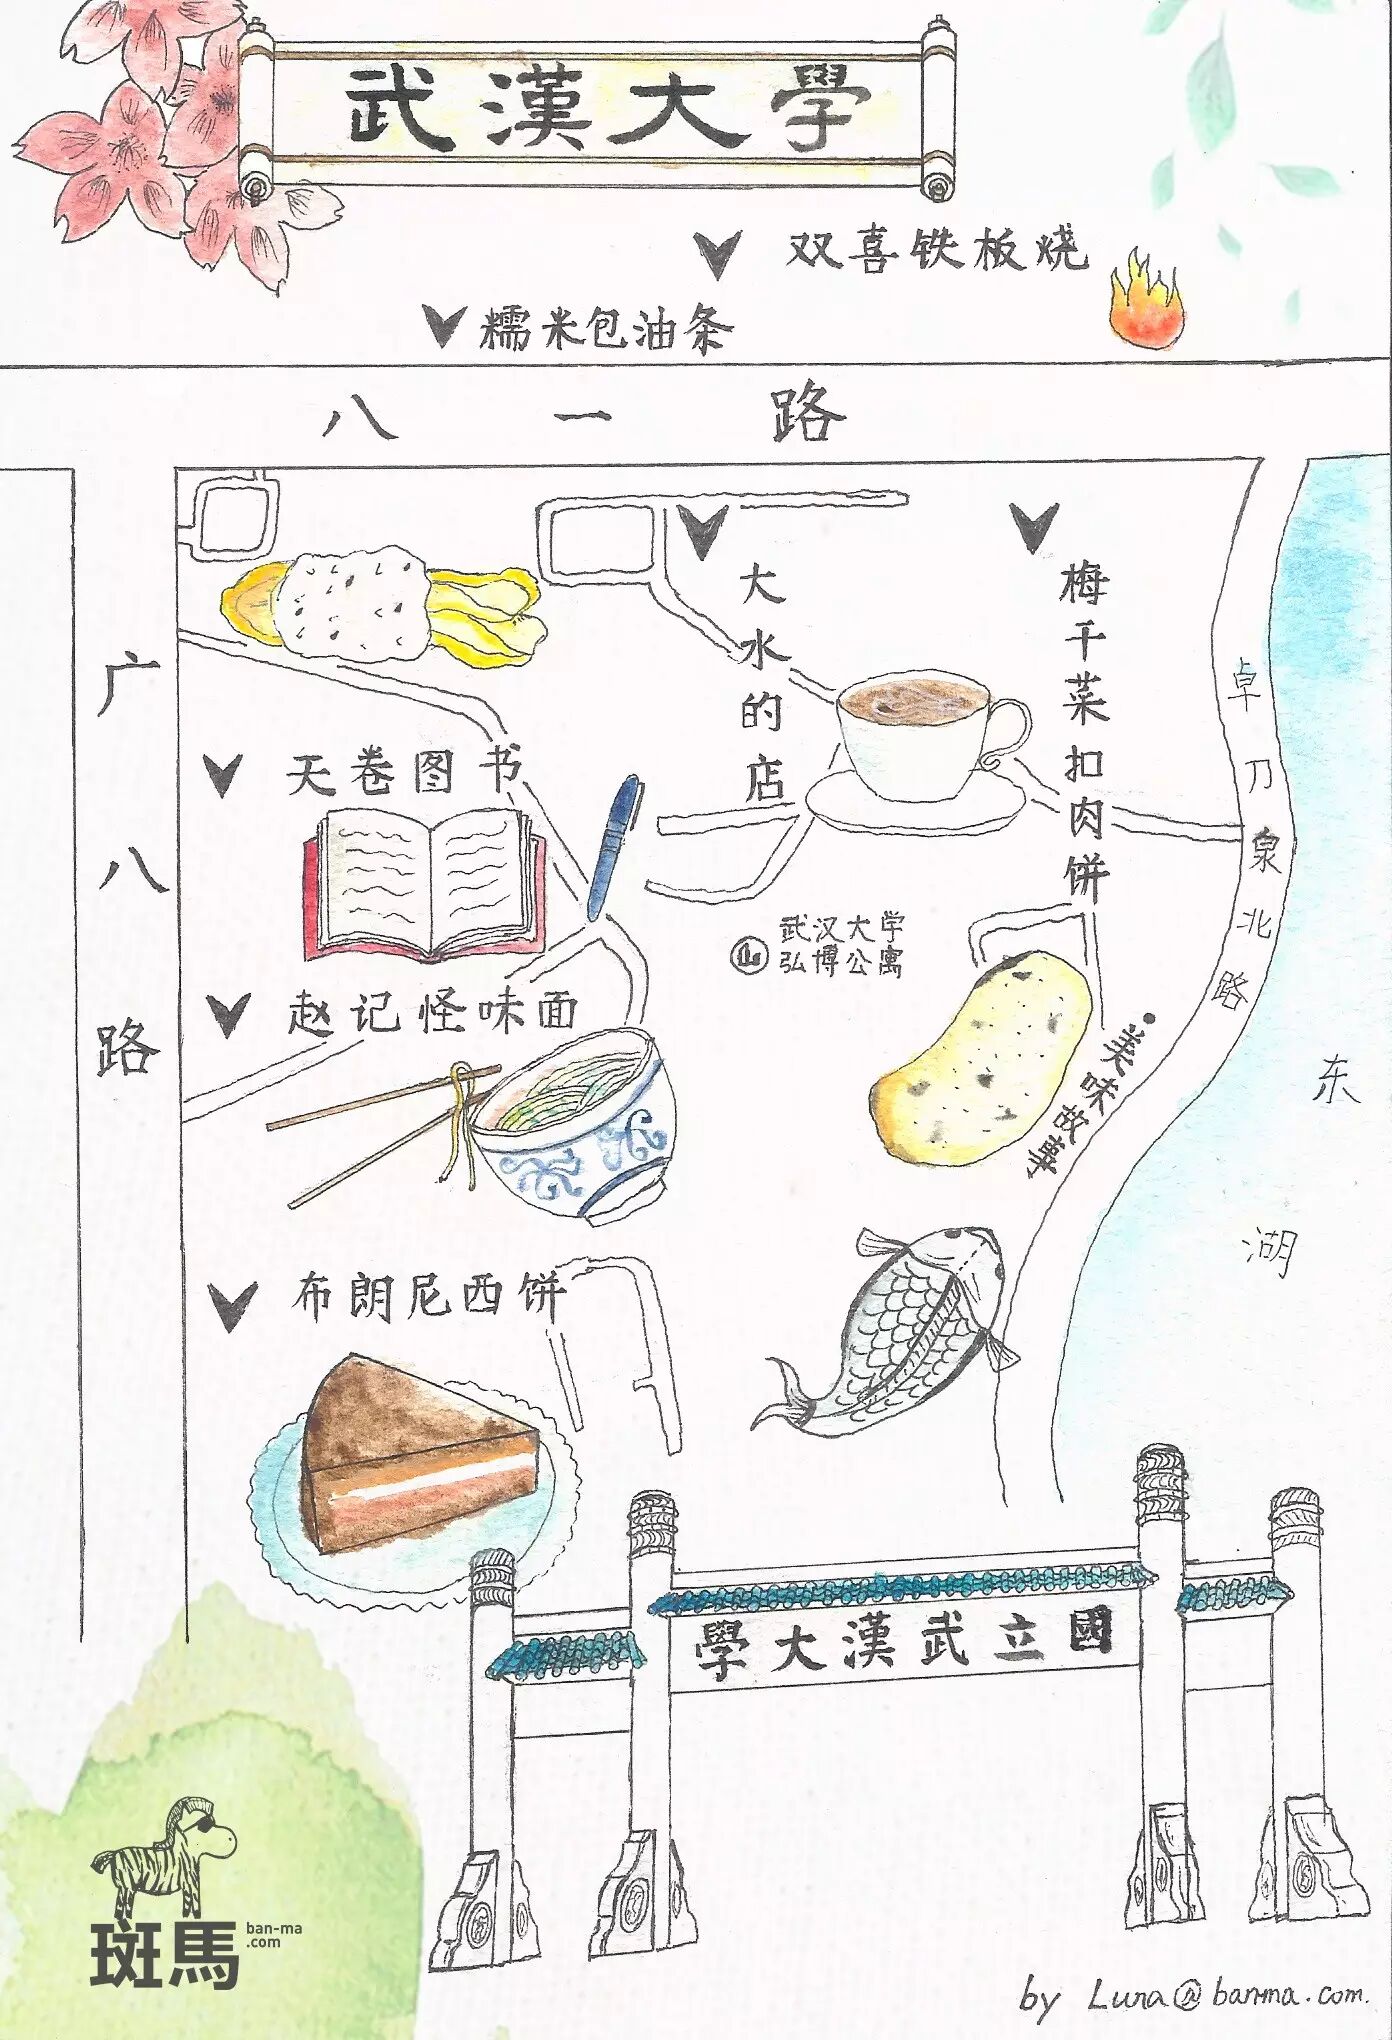 武漢大學
双喜铁板烧
糯米包油条
八一路
广八路
大水的店
梅干菜扣肉饼
卓刀泉北路
天卷图书
武汉大学
弘博公寓
赵记怪味面
美味故事
东湖
布朗尼西饼
學大漢武立國
斑馬
ban-ma
.com
by Luna@ban-ma.com.